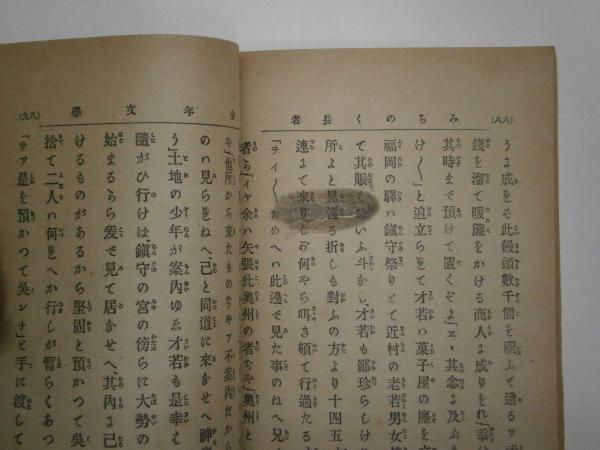 みちのく長者
(八八)
うま成とそ此饅頭數千個を祝ふて遣る
錢を溜て暖簾をかける商人ま成りをれ
其時まで預けて置くぞよ
と追立られて才若ハ菓子屋の
福岡の驛ハ鎭守祭りとて近村の老若男女
て其賑
いふ斗
才若も鄙珍らしけ
所よと見巡る折しも對ふの方より十四五
連まて來りしが何やら叩き頓て行過たる
めへハ此邊で見た事のねへ兄
少年文學
(八九)
者ら「イヤ余ハ矢張此奥州の者ちや「奥州と
や「他所から來たものちやア不案内だから
のハ見られめへ、己と同道に來させへ神
う」土地の少年が案内ゆゑ才若も是幸
隨がひ行けは、鎭守の宮の傍らに大勢の
始まるらら爰で見て居させへ、其内ま己
けるものがあるから堅固と預かつて呉
捨て二人ハ何
へか行しが暫らくあつ
「サア是を預かつて呉ンナ」と手に渡して